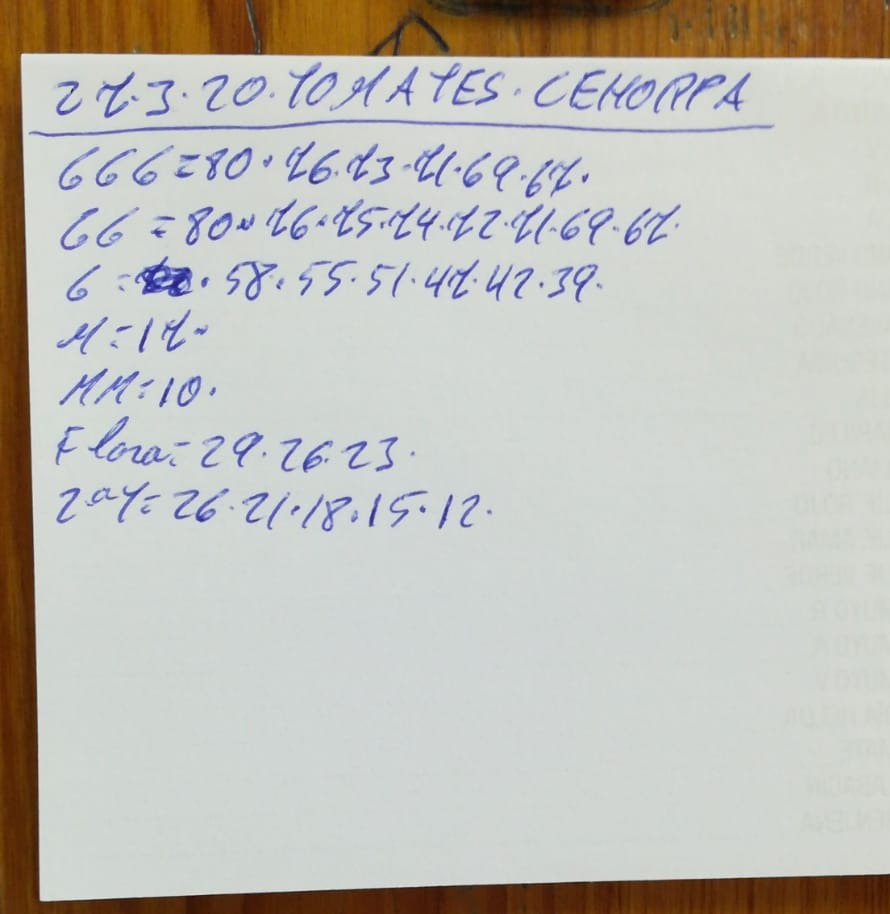 27.3.20.TOMATES.CEHORPA
GGG=80.76.73.71.69.67.
GG=80.76.75.74.72.71.69.67.
G=.58.55.51.47.42.39.
M=17.
MM=10.
Flora=29.26.23.
2ªY=26.21.18.15.12.